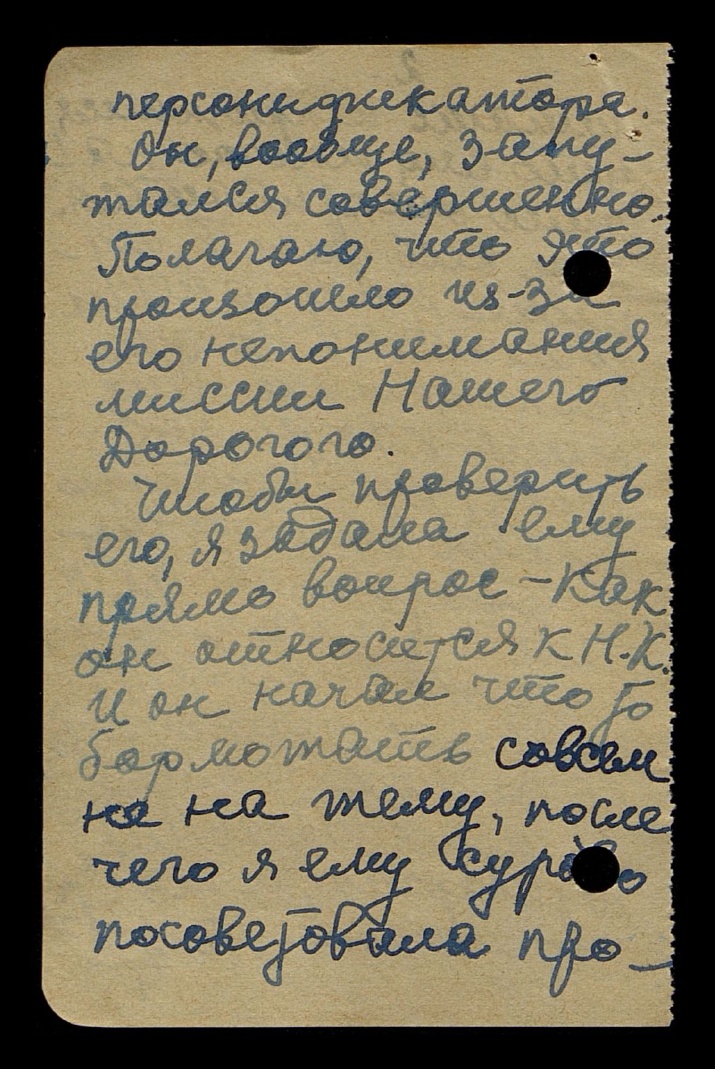 персонификатора.
Он, вообще, запу-
тался совершенно.
Полагаю, что это
произошло из-за
его непонимания
миссии Нашего
Дорогого.
Чтобы проверить
его, я задала ему
прямо вопрос – Как
он относится к Н.К.
И он начал что то
бормотать совсем
не на тему, после
чего я ему сурово
посоветовала про-